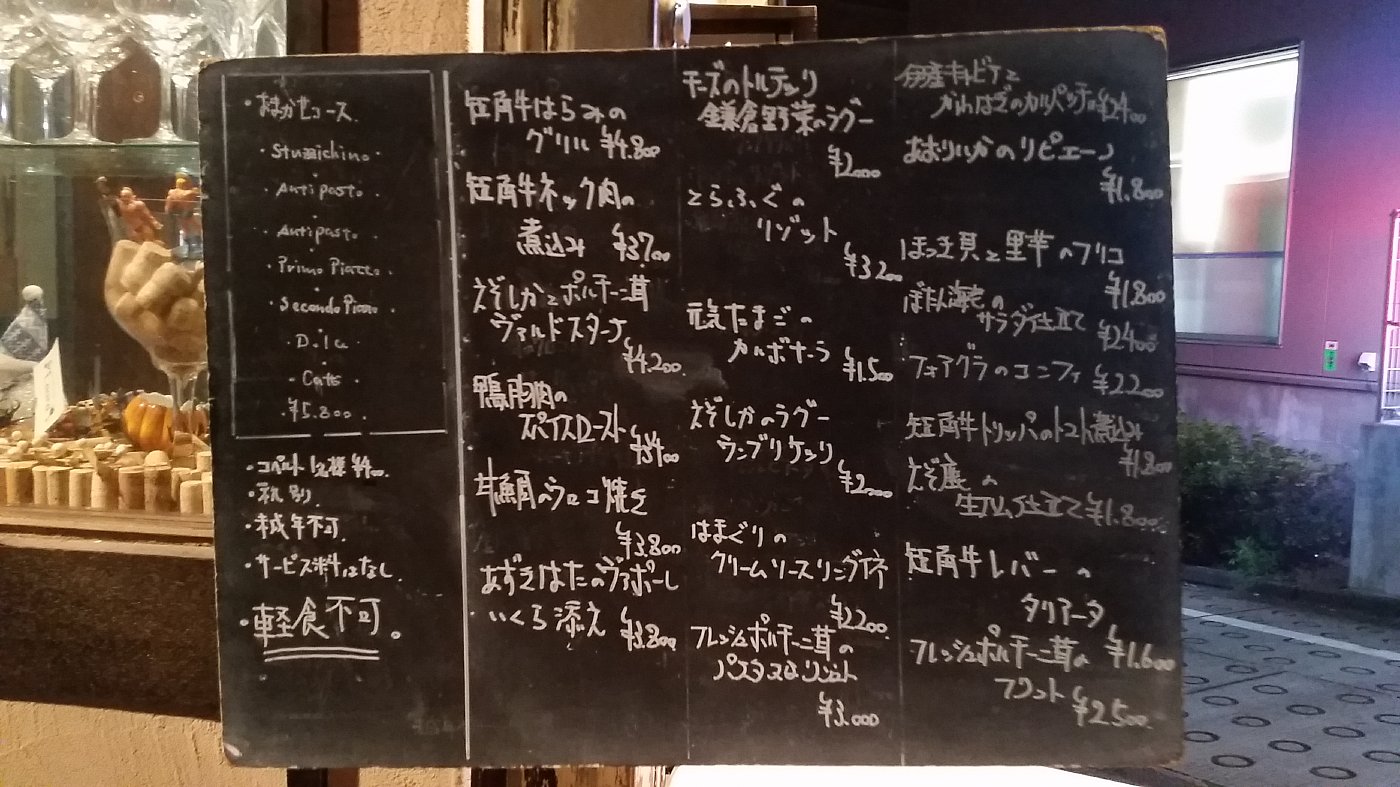 ・おまかせコース.
・Stuzzichino・
・Antipasto・
・Antipasto・
・Primo Piatto・
・Secondo Piatto・
・Dolce
・Cafe
・¥5.800.
・コペルト 1名様 ¥400.
・税別
・未成年不可.
・サービス料はなし.
・軽食不可。
短角牛はらみの
グリル ¥4.800
短角牛ネック肉の
煮込み ¥3700
えぞしかとポルチーニ茸
ヴァルドスターナ
¥4.200.
鴨胸肉の
スパイスロースト
¥3400
甘鯛のウロコ焼き
¥3.800
あずきはたのヴァポーレ
いくら添え ¥3.800
チーズのトルテッリ
鎌倉野菜のラグー
¥2000
とらふぐの
リゾット
¥3200
元気たまごの
カルボナーラ
¥1.500
えぞしかのラグー
ランブリケッリ
¥2000
はまぐりの
クリームソースリングイネ
¥2200.
フレッシュポルチーニ茸の
パスタ又はリゾット
¥3.000
キャビアと
かわはぎのカルパッチョ ¥2400
あおりいかのリピエーノ
¥1.800
ほっき貝と里芋のフリコ
¥1.800
ぼたん海老の
サラダ仕立て ¥2400
フォアグラのコンフィ ¥2200
短角牛トリッパのトマト煮込み
¥1.800
えぞ鹿の
生ハム仕立て ¥1.800.
短角牛レバーの
タリアータ
¥1.600
フレッシュポルチーニ茸の
フリット ¥2500